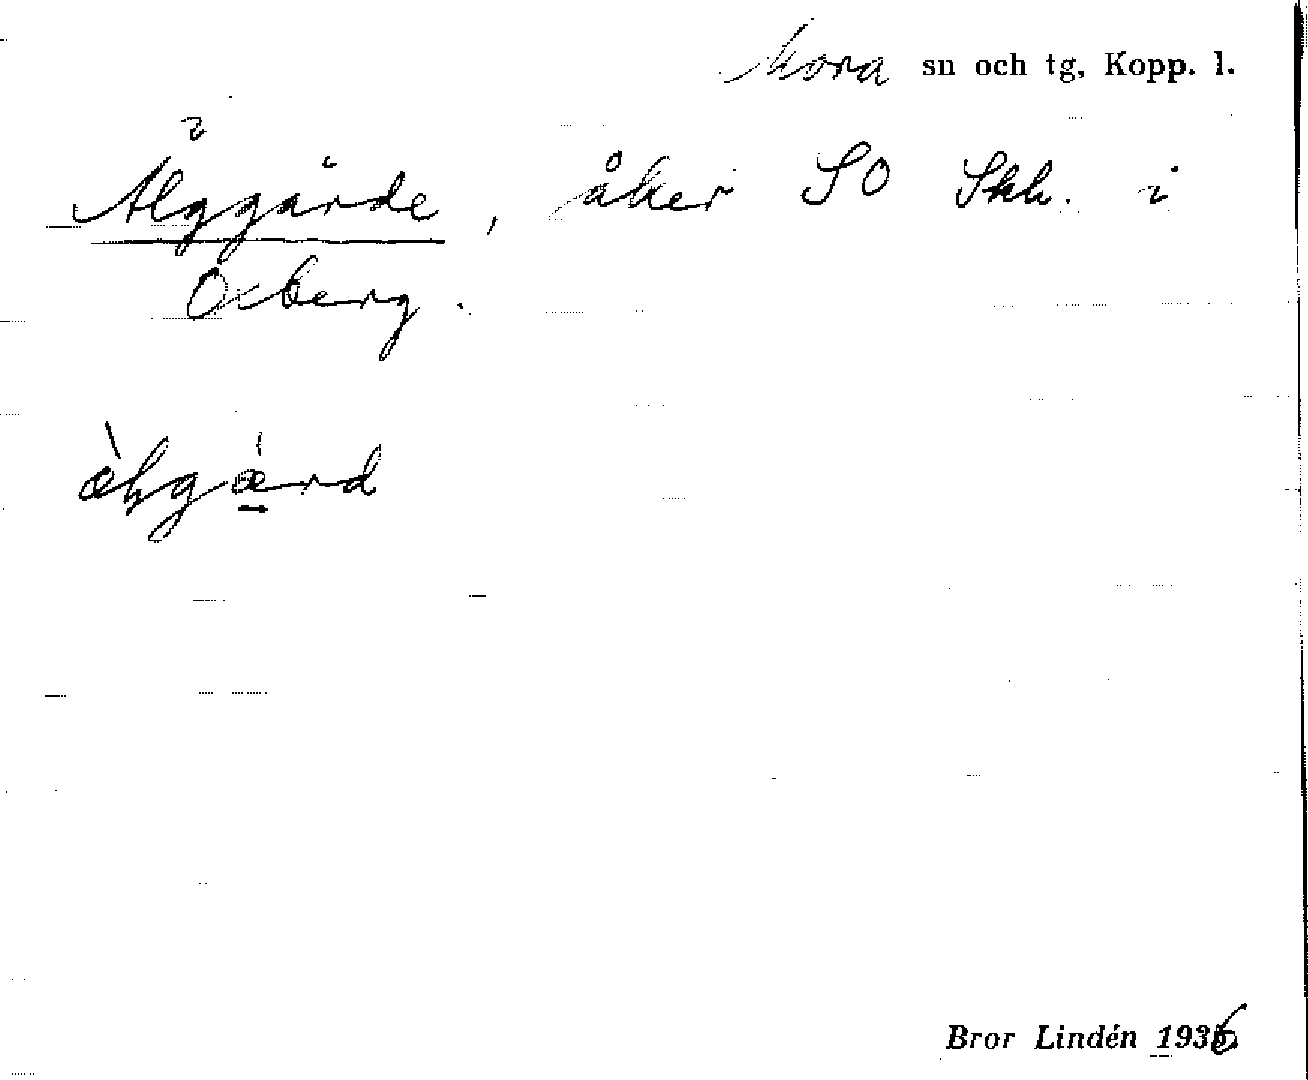 Mora sn och tg, Kopp. l.
Älggärde, åker SO Skh. i
Oxberg.
Bror Lindén 1936